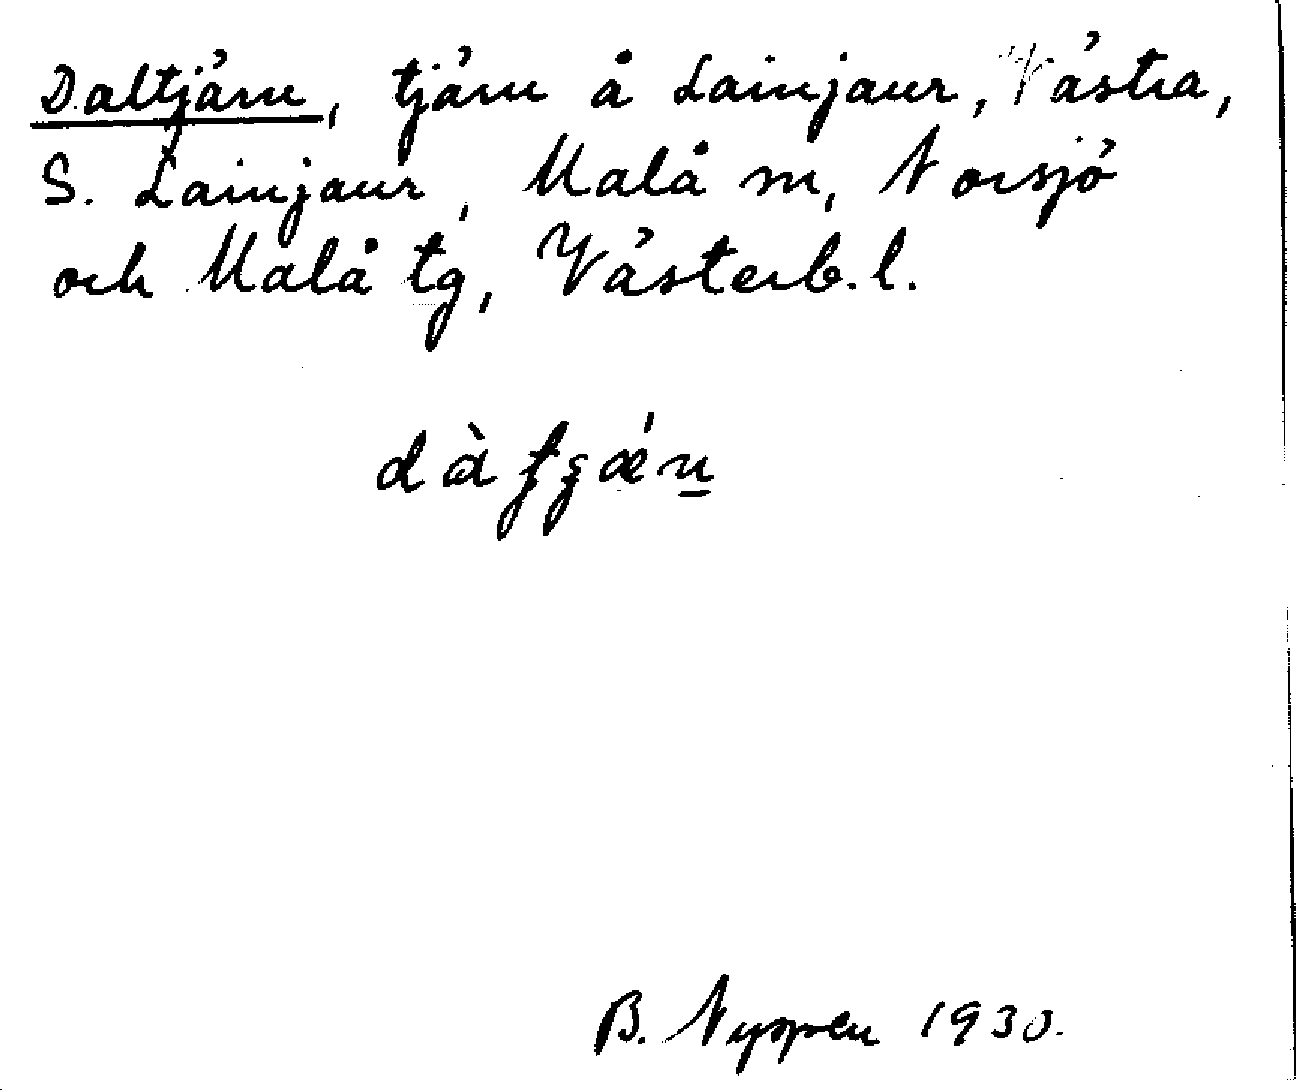 Daltjärn, tjärn å Lainjaur, Västra,
S. Lainjaur, Malå sn, Norsjö
och Malå tg, Västerb. l.
B. Nyspen 1930.